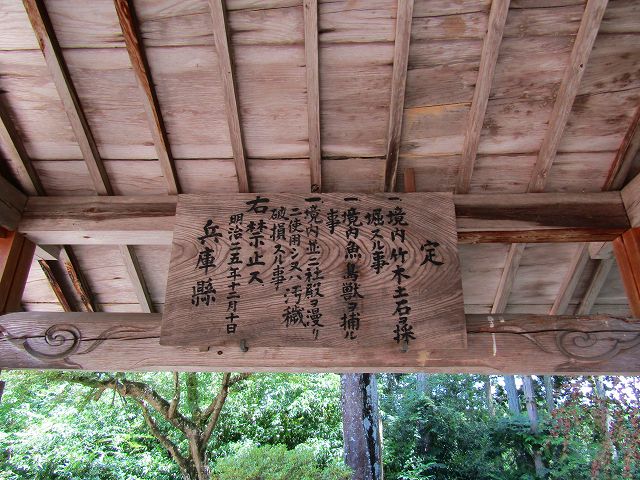 定
一境内竹木土石ヲ採
堀スル事
一境内魚鳥獣ヲ捕ル
事
一境内並ニ社殿ヲ漫リ
ニ使用シ又ハ汚穢
破損スル事
右禁止ス
明治三五年十二月十日
兵庫縣